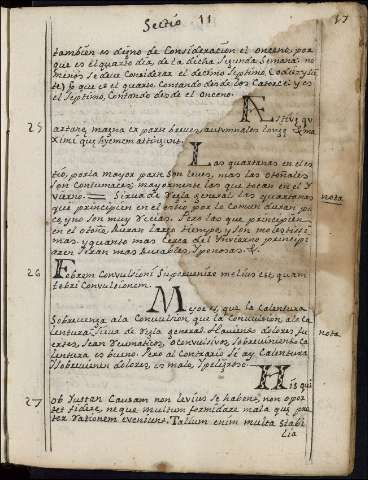 Sectio 11
17
tambien es digno de Consideracion el onceno, por
que es el quarto dia, de la dicha Segunda Semana. no
menos se deve Considerar el decimo septimo,
que es el quarto. Contando desde los Catorce: y es
el Septimo, Contando desde el Onceno.
Æstivę qu
25 artanę, magna ex parte breves, autumnales longę &ma
ximè quę hyemem attingunt.
Las quartanas en el es
tio, por la mayor parte son leves, mas las otoñales
son Contumaces, mayormente las que tocan en el Y
vierno. Sirva de regla general. las quartanas nota
que principien en el estio por lo Comun duran po
co, y no son muy recias. Pero las que principien
en el otoño, duran largo tiempo, y son molestissi
mas. y quanto mas cerca del Ynvierno principi
aren seran mas durables, y penosas &.
26 Febrem Convulsioni Supervenire melius est, quam
febri Convulsionem.
Mejor es, que la Calentura
Sobrevenga a la Convulsion, que la Convulsion, a la Ca
lentura. Sirva de regla general. Alquinto dolores fu
ertes, sean reumaticos, o convulsivos, sobreviniento Ca nota
lentura es bueno. Pero al Contrario si ay Calentura
y Sobrevienen dolores, es malo, y peligroso.
His quę
27 ob Justam Causam non levius se habent, non opor
tet fidere, neque multum formidare mala quę prę
ter rationem eveniunt. Talium enim multa stabi
lia